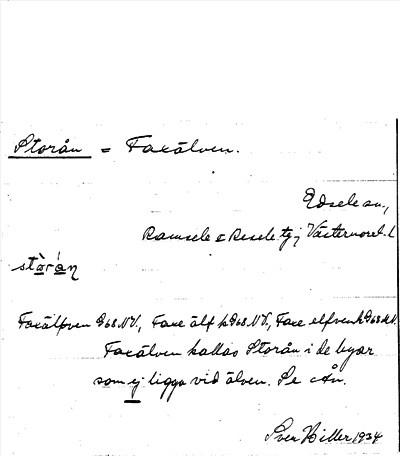 Storån = Faxälven.
Edsele sn.,
Ramsele o Resele tg; Västernorrl. l
stòrán
Faxälfven G68NV., Faxe älf k G68NV., Faxe elfven k G68
Faxälven kallas Storån i de byar
som ej ligga vid älven. Se Ån.
Sven Hiller 1934